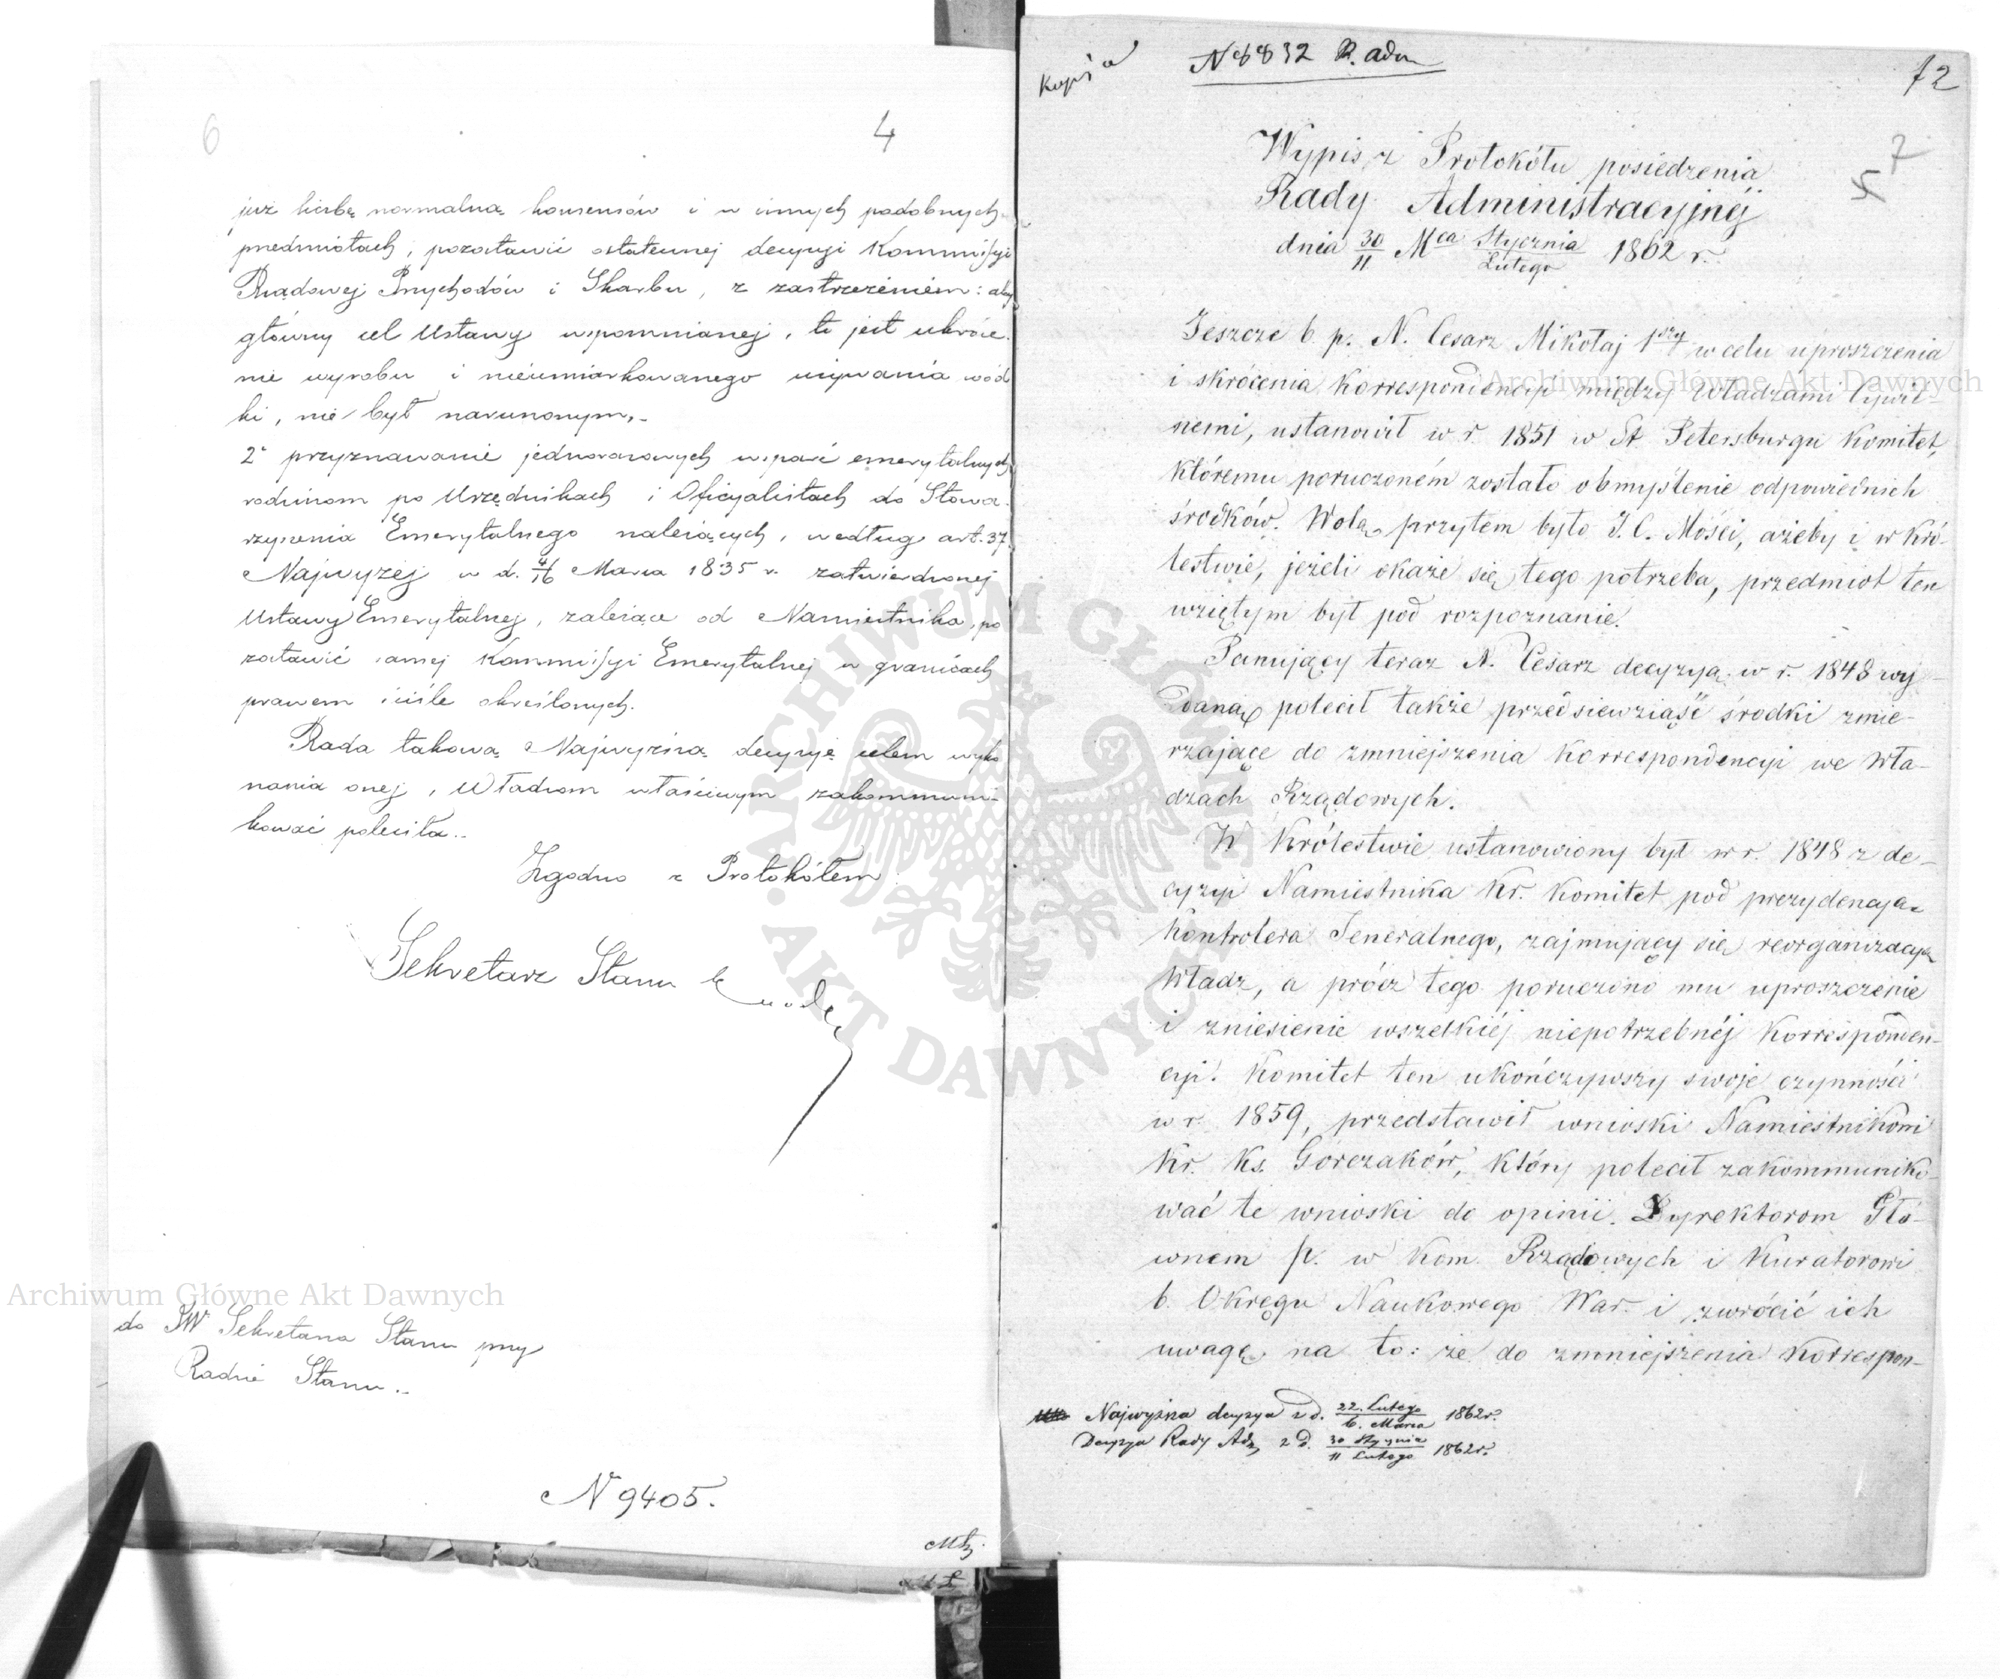 6
4
już liczbę normalną konsensów i w innych podobnych
przedmiotach, pozostawić ostatecznej decyzyi Kommissyi
Rządowej Przychodów i Skarbu, z zastrzeżeniem: aby
główny cel Ustawy wspomnianej, to jest ukróce-
nie wyrobu i nieumiarkowanego używania wód-
ki, nie był naruszonym.-
2º przyznawanie jednorazowych wsparć emerytalnych
rodzinom po Urzędnikach i Oficyalistach do Stowa-
rzyszenia Emerytalnego należących, według art. 37.
Najwyżej w d. 4/16 Marca 1835 r. zatwierdzonej
Ustawy Emerytalnej, zależące od Namiestnika, po
zostawić samej Kommissyi Emerytalnej w granicach
prawem ściśle określonych.
Rada takową Najwyższą decyzję celem wyko
nania onej, Władzom właściwym zakommuni-
kować poleciła..
Zgodno z Protokółem
Sekretarz Stanu
do JW Sekretarza Stanu przy
Radzie Stanu..
N 9405.
Kopia
N 8832 R. adm
72
7
5
Wypis z Protokółu posiedzenia
Rady Administracyjnéj
dnia 30/11 Mca Stycznia/Lutego 1862 r.
Jeszcze b. p. N. Cesarz Mikołaj 1szy w celu uproszczenia
i skrócenia korrespondencyi między Władzami Cywil-
nemi, ustanowił w r. 1851 w St Petersburgu Komitet,
któremu poruczoném zostało obmyślenie odpowiednich
środków. Wolą przytem było J. C. Mości, ażeby i w Kró-
lestwie, jeżeli okaże się tego potrzeba, przedmiot ten
wziętym był pod rozpoznanie.
Panujący teraz N. Cesarz decyzyą w r. 1848 wy-
daną polecił także przedsiewziąść środki zmie-
rzające do zmniejszenia korrespondencyi we Wła-
dzach Rządowych.
W Królestwie ustanowiony był w r. 1848 z de-
cyzyi Namiestnika Kr. Komitet pod prezydencją
Kontrolera Jeneralnego, zajmujący się reorganizacyą
Władz, a prócz tego poruczono mu uproszczenie
i zniesienie wszelkiéj niepotrzebnéj korresponden-
cyi. Komitet ten ukończywszy swoje czynności
w r. 1859, przedstawił wnioski Namiestnikowi
Kr. Ks. Gorczaków, który polecił zakommuniko-
wać te wnioski do opinii Dyrektorom Głó-
wnem p. w Kom. Rządowych i Kuratorowi
b. Okręgu Naukowego War. i zwrócić ich
uwagę na to: że do zmniejszenia korrespon-
Najwyższa decyzya z d. 22. Lutego/6. Marca 1862r.
Decyzya Rady Adm z d. 30 Stycznia/11 Lutego 1862r.
Archiwum Główne Akt Dawnych
Archiwum Główne Akt Dawnych
ARCHIWUM GŁÓWNE
AKT DAWNYCH